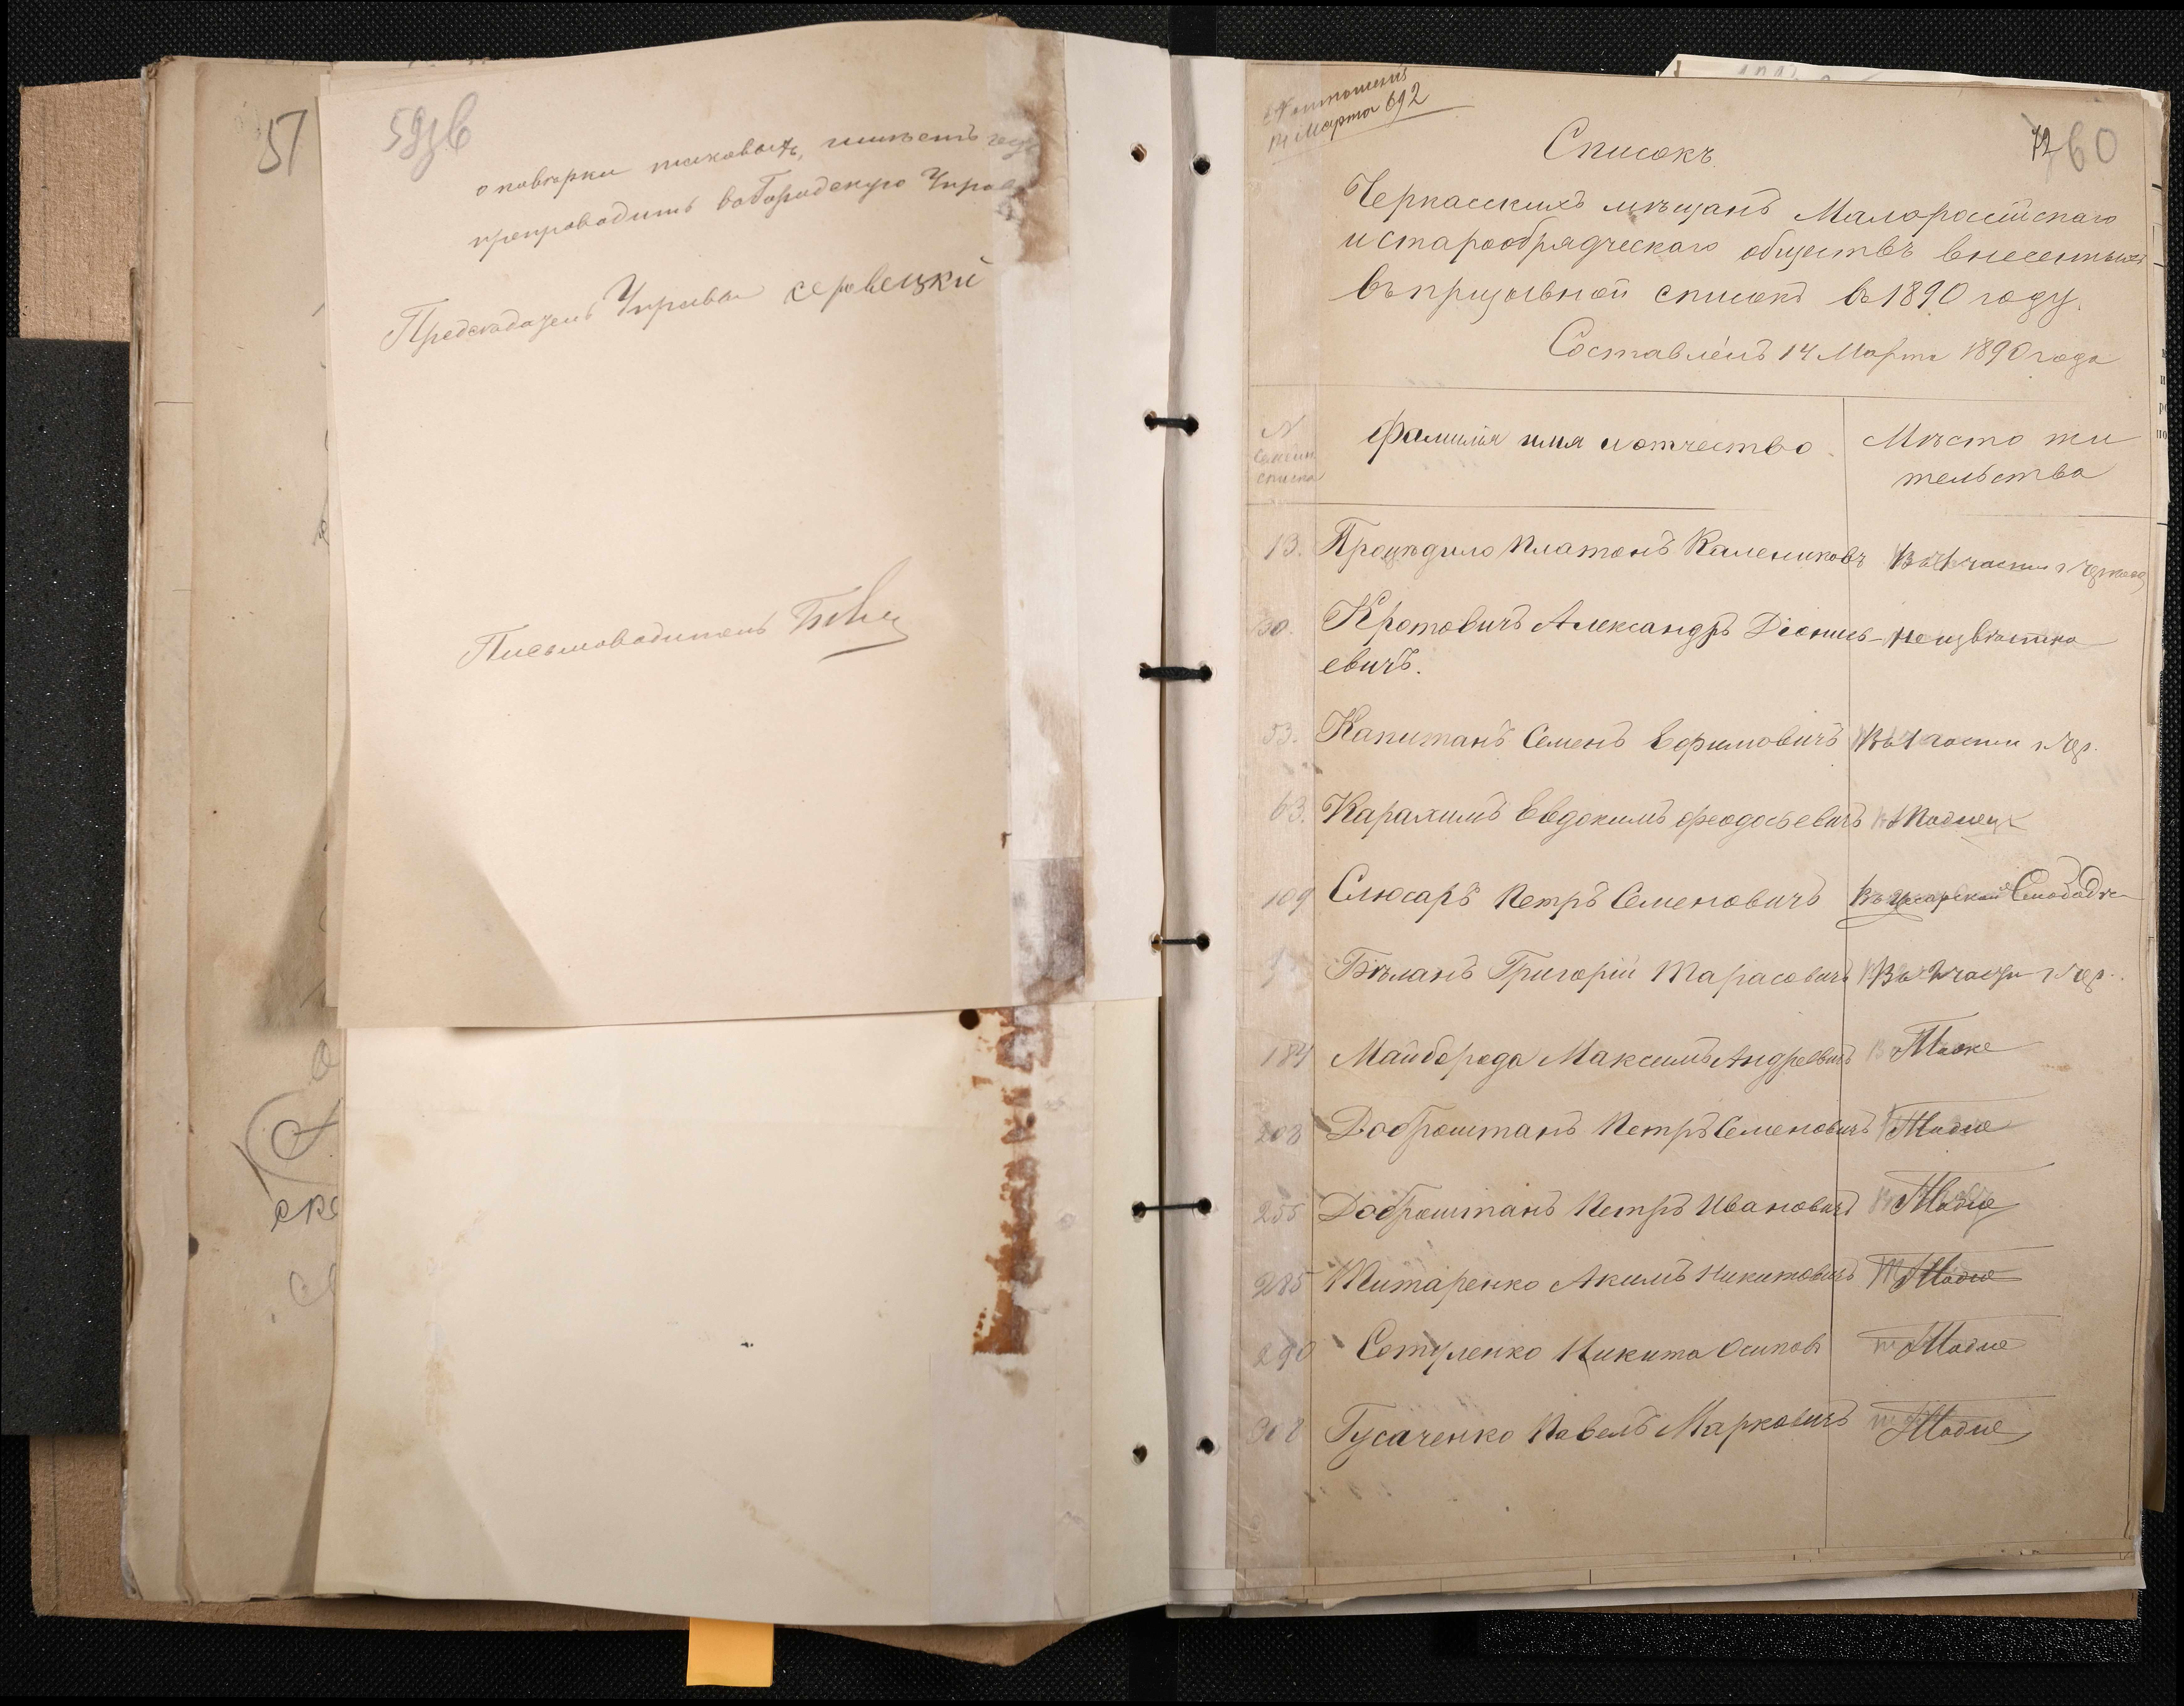 57
59зв
о повѣрки таковыхъ, имѣетъ
препроводить въ Городскую Управ
Предсѣдатель Управы
Письмоводитель
14 Марта 692
72 60
Списокъ
Черкасскихъ мѣщанъ Малороссійскаго
и старообрядческаго обществъ внесенныхъ
въ призывной списокъ въ 1890 году.
Составленъ 14 Марта 1890 года
N семейн списка
Фамилія имя и отчество
Мѣсто жительства
13. Процѣдило Платонъ Калениковъ Въ 1 части г Черкасс
30. Кротовичъ Александръ Діонисьевичъ. неизвѣстно
53. Капитанъ Семенъ Ефимовичъ Въ 1 части г Чер.
63. Карахимъ Евдокимъ Феодосьевичъ
109 Слюсарь Петръ Семеновичъ Слободѣ
Бѣланъ Григорій Тарасовичъ Въ 2 части г Чер.
184 Майборода Максимъ Андреевичъ Тоже
208 Доброштанъ Петръ Семеновичъ Тоже
255 Доброштанъ Петръ Ивановичъ Тоже
285 Титаренко Акимъ Никитовичъ Тоже
290 Сотуленко Никита Осиповъ Тоже
308 Гусаченко Павелъ Марковичъ Тоже